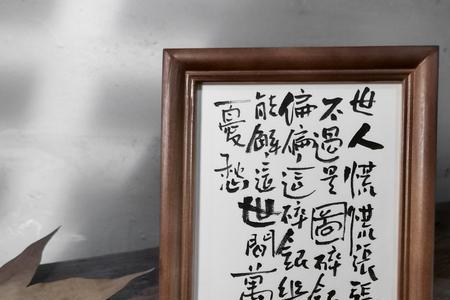 世人慌慌張張
不過是圖碎銀
偏偏這碎銀幾
能解這世間萬
憂愁